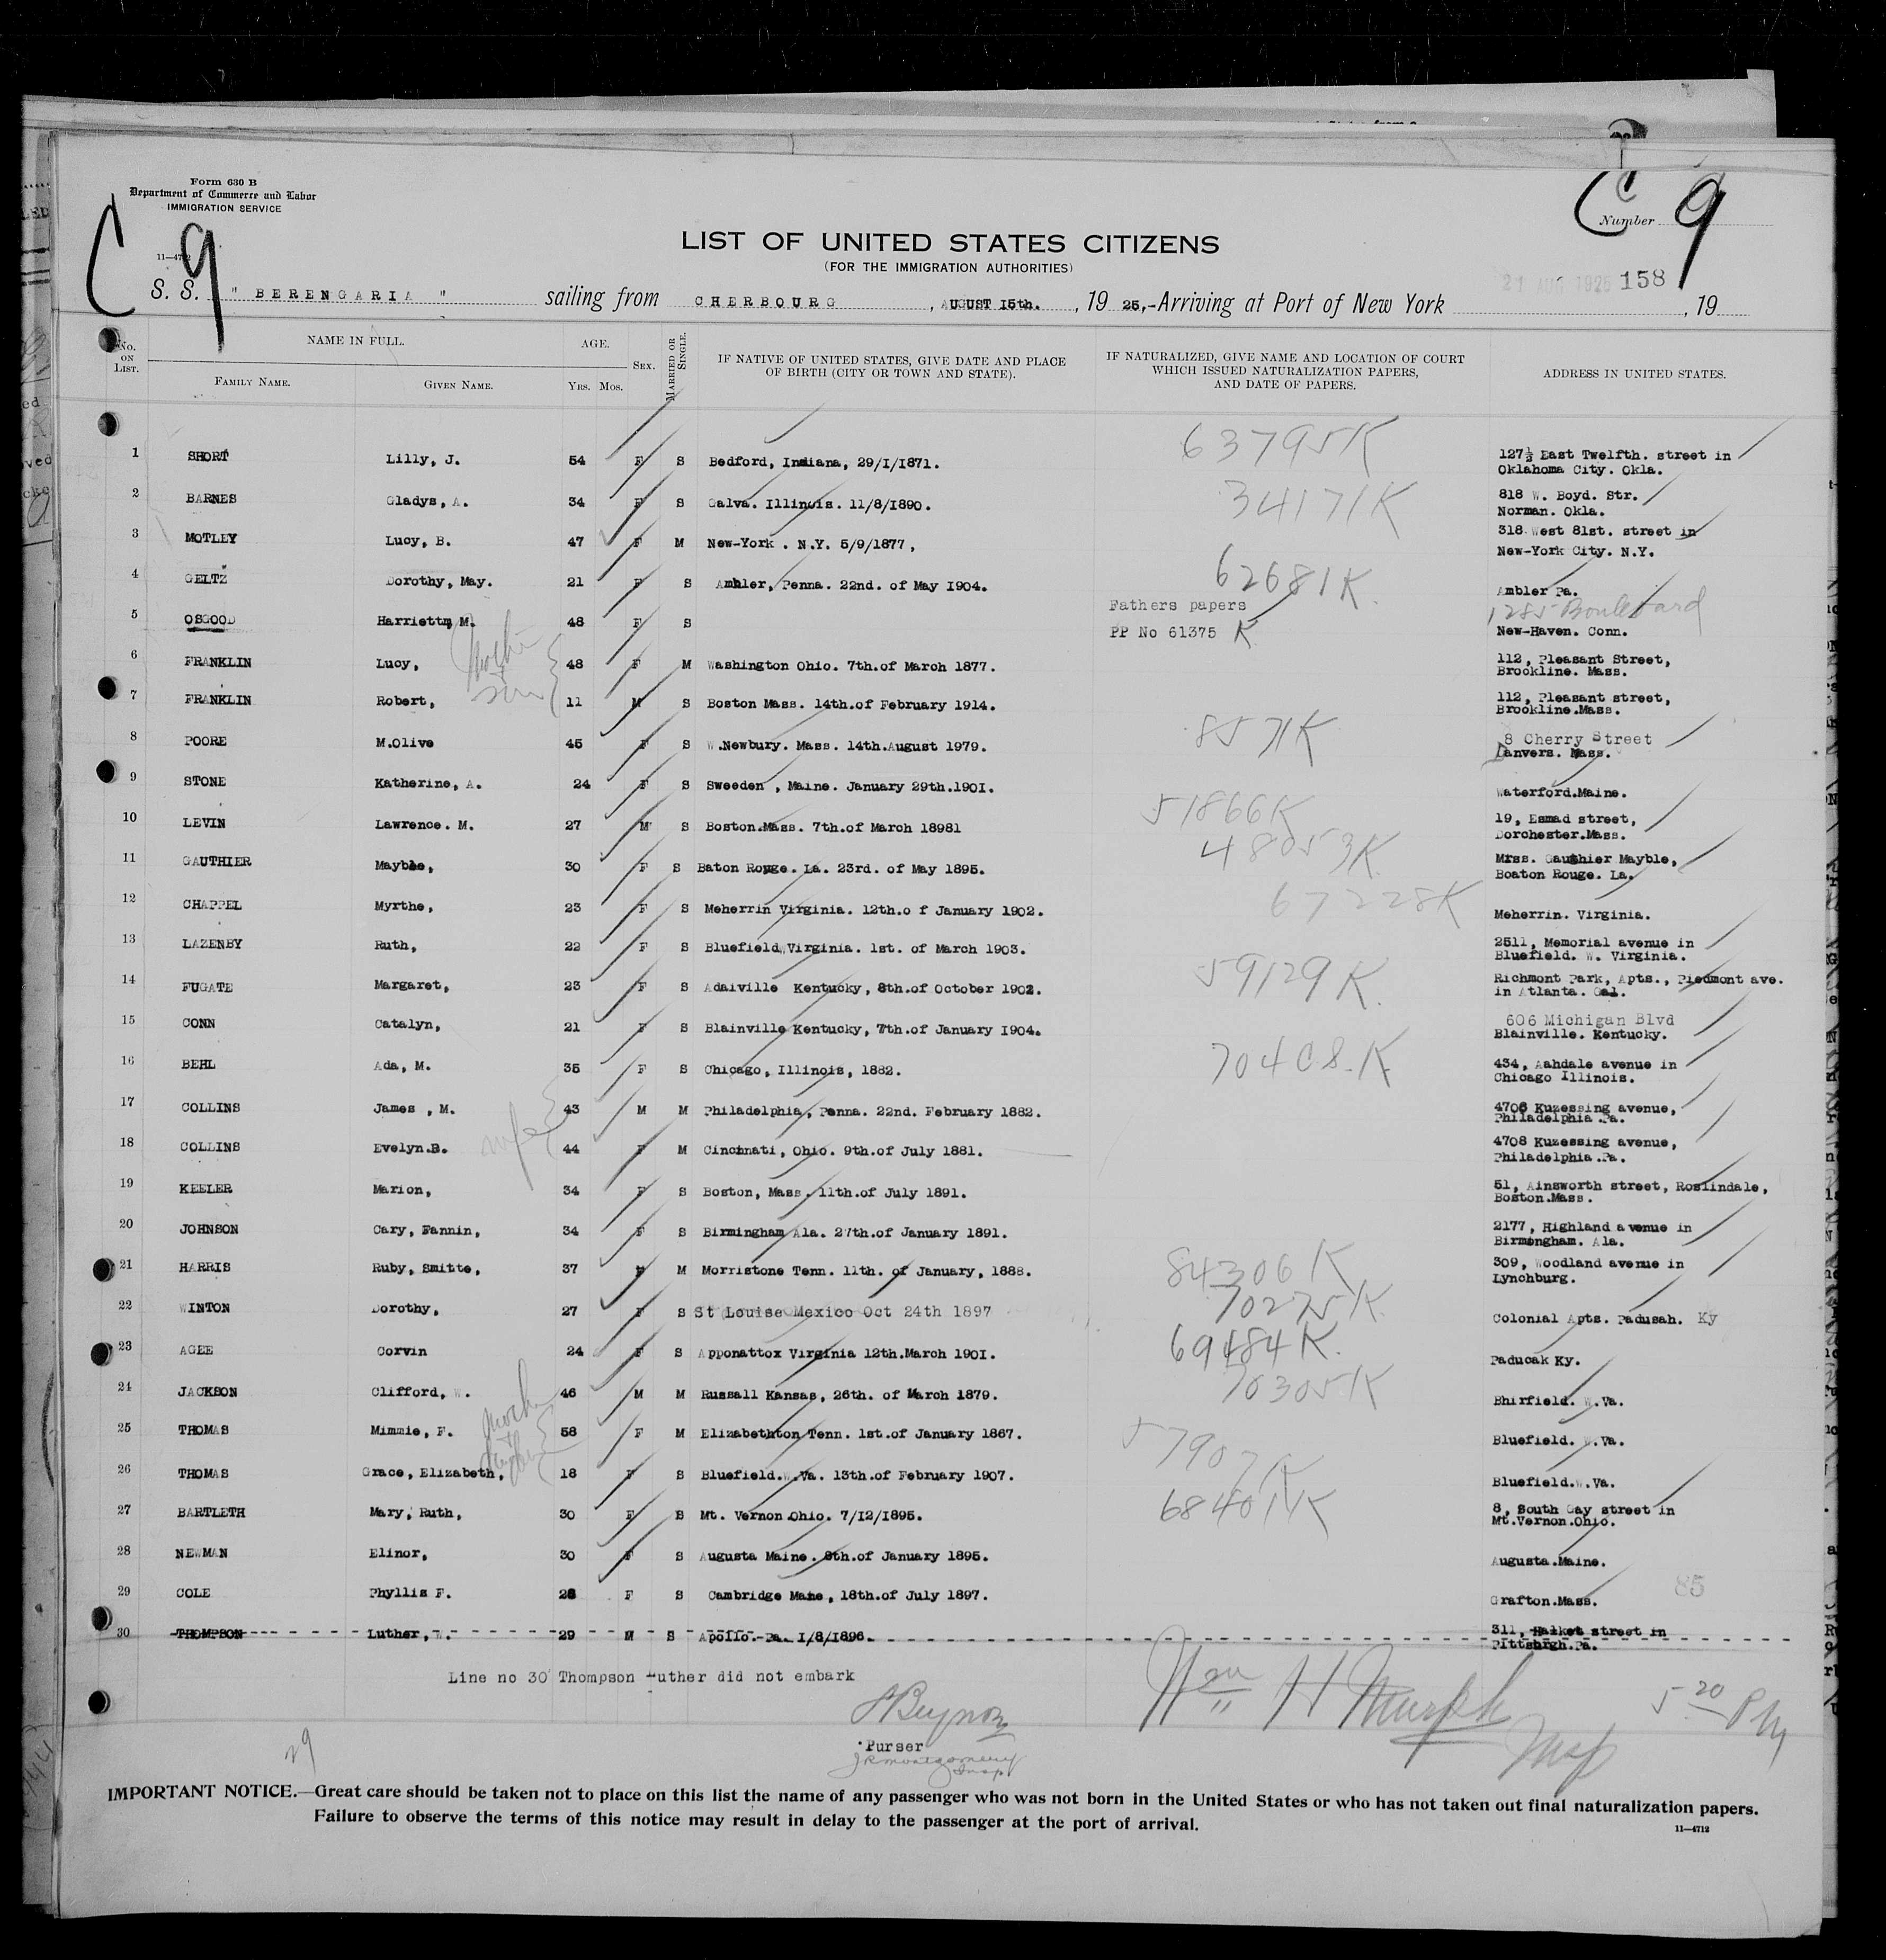 Form 630 B
Department of Commerce and Labor
IMMIGRATION SERVICE
C 9
C 9
Number
LIST OF UNITED STATES CITIZENS
(FOR THE IMMIGRATION AUTHORITIES)
21 AUG 1925 158
S. S. " BERENGARIA " sailing from CHERBOURG , AUGUST 15th. , 19 25,-Arriving at Port of New York , 19
No. ON LIST. NAME IN FULL. AGE. SEX. MARRIED OR SINGLE. IF NATIVE OF UNITED STATES, GIVE DATE AND PLACE OF BIRTH (CITY OR TOWN AND STATE). IF NATURALIZED, GIVE NAME AND LOCATION OF COURT WHICH ISSUED NATURALIZATION PAPERS, AND DATE OF PAPERS. ADDRESS IN UNITED STATES.
FAMILY NAME. GIVEN NAME. YRS. MOS.
1 SHORT Lilly, J. 54 F S Bedford, Indiana, 29/I/1871. 63795K 127½ East Twelfth. street in
Oklahoma City. Okla.
2 BARNES Gladys, A. 34 F S Galva. Illinois. 11/8/1890. 34171K 818 W. Boyd. Str.
Norman. Okla.
3 MOTLEY Lucy, B. 47 F M New-York . N.Y. 5/9/1877, 318 West 81st. street in
New-York City. N.Y.
4 GELTZ Dorothy, May. 21 F S Ambler, Penna. 22nd. of May 1904. 62681K. Ambler Pa.
Fathers papers 1285 Boulevard
5 OSGOOD Harrietta M. 48 F S PP No 61375 K New-Haven. Conn.
Mother
son
6 FRANKLIN Lucy, 48 F M Washington Ohio. 7th.of March 1877. 112, Pleasant Street,
Brookline. Mass.
7 FRANKLIN Robert, 11 M S Boston Mass. 14th.of February 1914. 112, Pleasant street,
Brookline.Mass.
8 POORE M.Olive 45 F S W.Newbury. Mass. 14th.August 1979. 8571K 8 Cherry Street
Danvers. Mass.
9 STONE Katherine, A. 24 F S Sweeden , Maine. January 29th.1901. Waterford.Maine.
10 LEVIN Lawrence. M. 27 M S Boston.Mass. 7th.of March 18981 51866K 19, Esmad street,
Dorchester.Mass.
11 GAUTHIER Mayble, 30 F S Baton Rouge. La. 23rd. of May 1895. 48053K Mrss. Gauthier Mayble,
Boaton Rouge. La.
12 CHAPPEL Myrthe, 23 F S Meherrin Virginia. 12th.o f January 1902. 67228K Meherrin. Virginia.
13 LAZENBY Ruth, 22 F S Bluefield,Virginia. 1st. of March 1903. 2511, Memorial avenue in
Bluefield. W. Virginia.
14 FUGATE Margaret, 23 F S Adaiville Kentucky, 8th.of October 1902. 59129K. Richmont Park, Apts., Piedmont ave.
in Atlanta. Gal.
15 CONN Catalyn, 21 F S Blainville Kentucky, 7th.of January 1904. 606 Michigan Blvd
Blainville. Kentucky.
16 BEHL Ada, M. 35 F S Chicago, Illinois, 1882. 70408.K 434, Aahdale avenue in
Chicago Illinois.
17 COLLINS James , M. 43 M M Philadelphia, Penna. 22nd. February 1882. 4706 Kuzessing avenue,
Philadelphia Pa.
wife
18 COLLINS Evelyn.B. 44 F M Cincinnati, Ohio. 9th.of July 1881. 4708 Kuzessing avenue,
Philadelphia.Pa.
19 KEELER Marion, 34 F S Boston, Mass. 11th.of July 1891. 51, Ainsworth street, Roslindale,
Boston.Mass.
20 JOHNSON Cary, Fannin, 34 F S Birmingham Ala. 27th.of January 1891. 2177, Highland avenue in
Birmongham. Ala.
21 HARRIS Ruby, Smitte, 37 M Morristone Tenn. 11th. of January, 1888. 84306 K 309, Woodland avenue in
Lynchburg.
22 WINTON Dorothy, 27 F S St Louise Mexico Oct 24th 1897 70275K Colonial Apts. Padusah. Ky
23 AGEE Corvin 24 F S Apponattox Virginia 12th.March 1901. 69484K. Paducak Ky.
24 JACKSON Clifford, W. 46 M M Russall Kansas, 26th. of March 1879. 70305.K Bhirfield. W.Va.
Mother
25 THOMAS Mimmie, F. 58 F M Elizabethton Tenn. 1st.of January 1867. 57907K Bluefield. W.Va.
26 THOMAS Grace, Elizabeth, 18 F S Bluefield.W.Va. 13th.of February 1907. Bluefield.W.Va.
27 BARTLETH Mary, Ruth, 30 F S Mt. Vernon Ohio. 7/12/1895. 8, South Gay street in
Mt.Vernon.Ohio.
28 NEWMAN Elinor, 30 F S Augusta Maine. 8th.of January 1895. Augusta.Maine.
29 COLE Phyllis F. 28 F S Cambridge Mane, 18th.of July 1897. Grafton.Mass. 85
30 THOMPSON Luther, W. 29 M S Apollo.-Pa. 1/8/1896. 311, Halket street in
Pittsburgh.Pa.
Line no 30 Thompson Luther did not embark
Wm H Murph
Insp
5 20 PM
Purser
JR Montgomery
Insp
29
IMPORTANT NOTICE.—Great care should be taken not to place on this list the name of any passenger who was not born in the United States or who has not taken out final naturalization papers.
Failure to observe the terms of this notice may result in delay to the passenger at the port of arrival.
11—4712